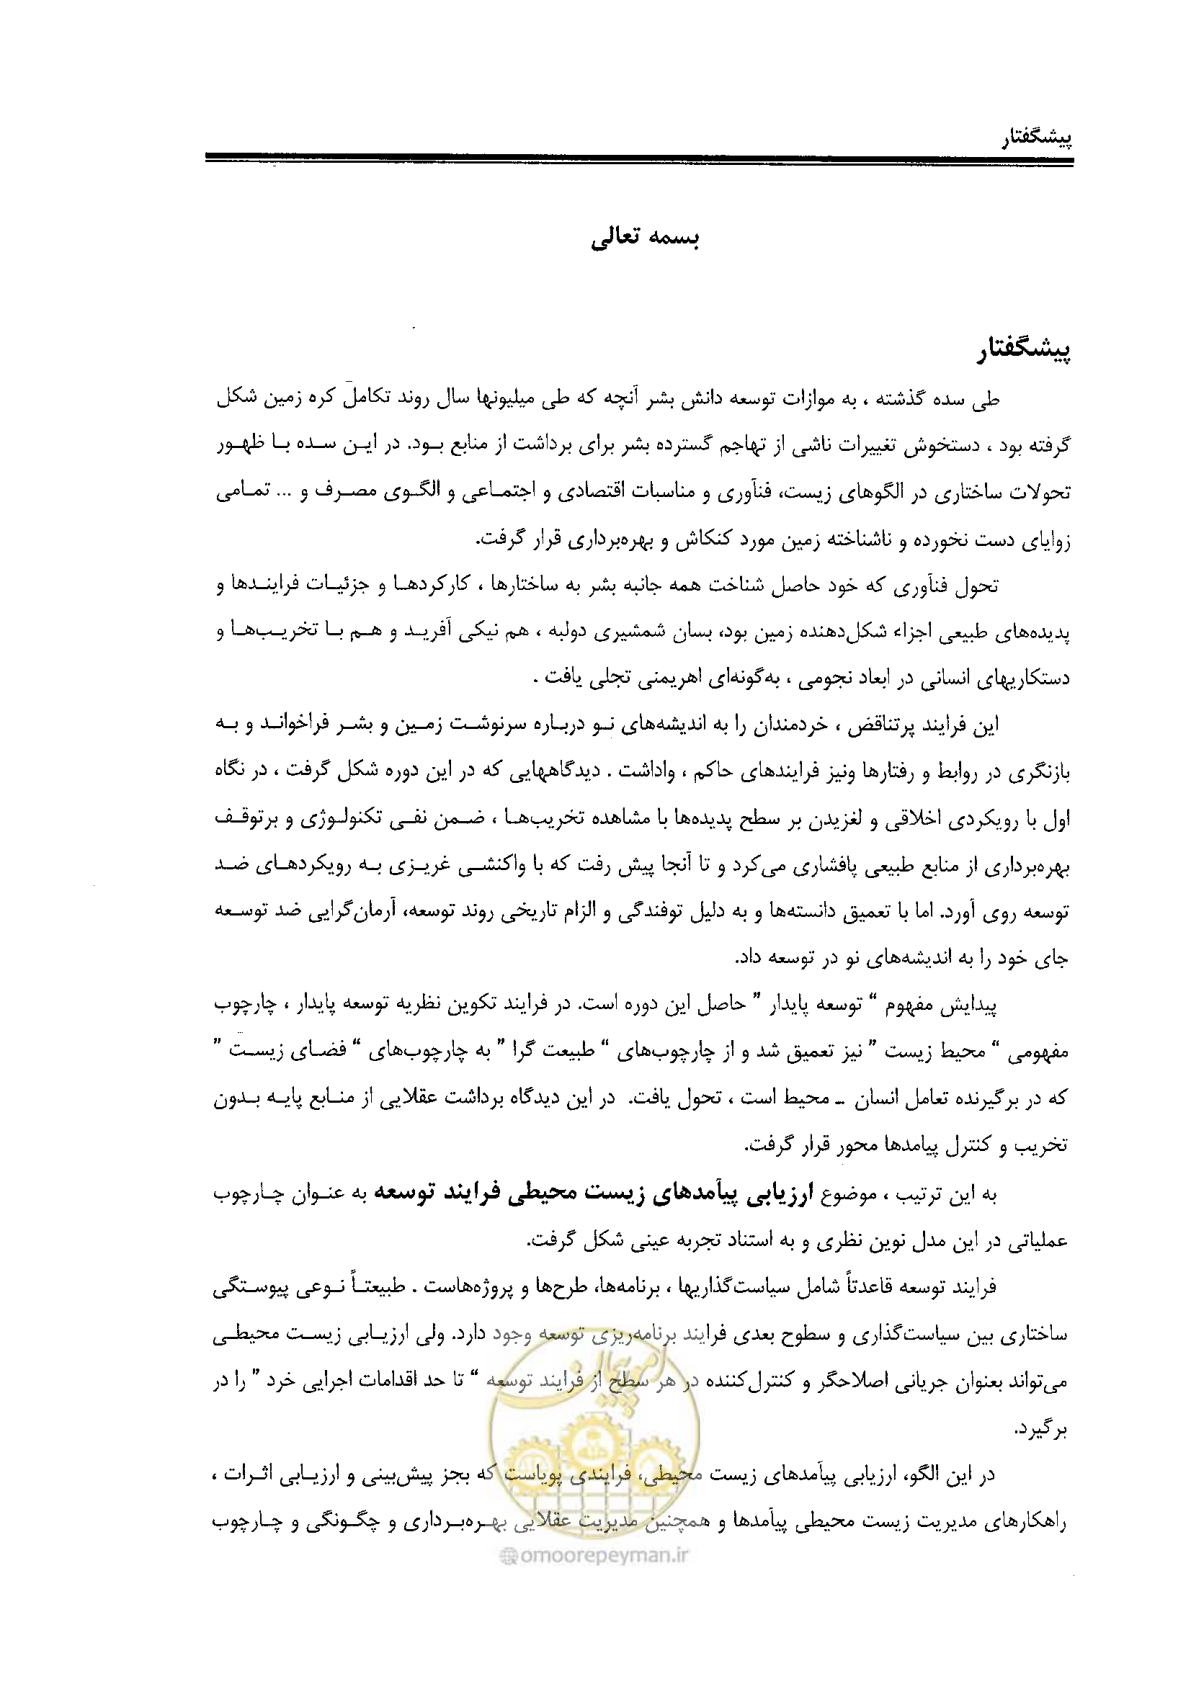 پیشگفتار
بسمه تعالی
پیشگفتار
طی سده گذشته ، به موازات توسعه دانش بشر آنچه که طی میلیونها سال روند تکامل کره زمین شکل
گرفته بود ، دستخوش تغییرات ناشی از تهاجم گسترده بشر برای برداشت از منابع بود. در این سده با ظهور
تحولات ساختاری در الگوهای زیست، فنآوری و مناسبات اقتصادی و اجتماعی و الگوی مصرف و ... تمامی
زوایای دست نخورده و ناشناخته زمین مورد کنکاش و بهره‌برداری قرار گرفت.
تحول فنآوری که خود حاصل شناخت همه جانبه بشر به ساختارها ، کارکردها و جزئیات فرایندها و
پدیده‌های طبیعی اجزاء شکل‌دهنده زمین بود، بسان شمشیری دولبه ، هم نیکی آفرید و هم با تخریب‌ها و
دستکاریهای انسانی در ابعاد نجومی ، به‌گونه‌ای اهریمنی تجلی یافت .
این فرایند پرتناقض ، خردمندان را به اندیشه‌های نو درباره سرنوشت زمین و بشر فراخواند و به
بازنگری در روابط و رفتارها ونیز فرایندهای حاکم ، واداشت . دیدگاههایی که در این دوره شکل گرفت ، در نگاه
اول با رویکردی اخلاقی و لغزیدن بر سطح پدیده‌ها با مشاهده تخریب‌ها ، ضمن نفی تکنولوژی و برتوقف
بهره‌برداری از منابع طبیعی پافشاری می‌کرد و تا آنجا پیش رفت که با واکنشی غریزی به رویکردهای ضد
توسعه روی آورد. اما با تعمیق دانسته‌ها و به دلیل توفندگی و الزام تاریخی روند توسعه، آرمان‌گرایی ضد توسعه
جای خود را به اندیشه‌های نو در توسعه داد.
پیدایش مفهوم “ توسعه پایدار ” حاصل این دوره است. در فرایند تکوین نظریه توسعه پایدار ، چارچوب
مفهومی “ محیط زیست ” نیز تعمیق شد و از چارچوب‌های “ طبیعت گرا ” به چارچوب‌های “ فضای زیست ”
که در برگیرنده تعامل انسان ـ محیط است ، تحول یافت. در این دیدگاه برداشت عقلایی از منابع پایه بدون
تخریب و کنترل پیامدها محور قرار گرفت.
به این ترتیب ، موضوع ارزیابی پیآمدهای زیست محیطی فرایند توسعه به عنوان چارچوب
عملیاتی در این مدل نوین نظری و به استناد تجربه عینی شکل گرفت.
فرایند توسعه قاعدتاً شامل سیاست‌گذاریها ، برنامه‌ها، طرح‌ها و پروژه‌هاست . طبیعتاً نوعی پیوستگی
ساختاری بین سیاست‌گذاری و سطوح بعدی فرایند برنامه‌ریزی توسعه وجود دارد. ولی ارزیابی زیست محیطی
می‌تواند بعنوان جریانی اصلاحگر و کنترل‌کننده در هر سطح از فرایند توسعه “ تا حد اقدامات اجرایی خرد ” را در
برگیرد.
در این الگو، ارزیابی پیآمدهای زیست محیطی، فرایندی پویاست که بجز پیش‌بینی و ارزیابی اثرات ،
راهکارهای مدیریت زیست محیطی پیآمدها و همچنین مدیریت عقلایی بهره‌برداری و چگونگی و چارچوب
امور پیمان
@omoorepeyman.ir